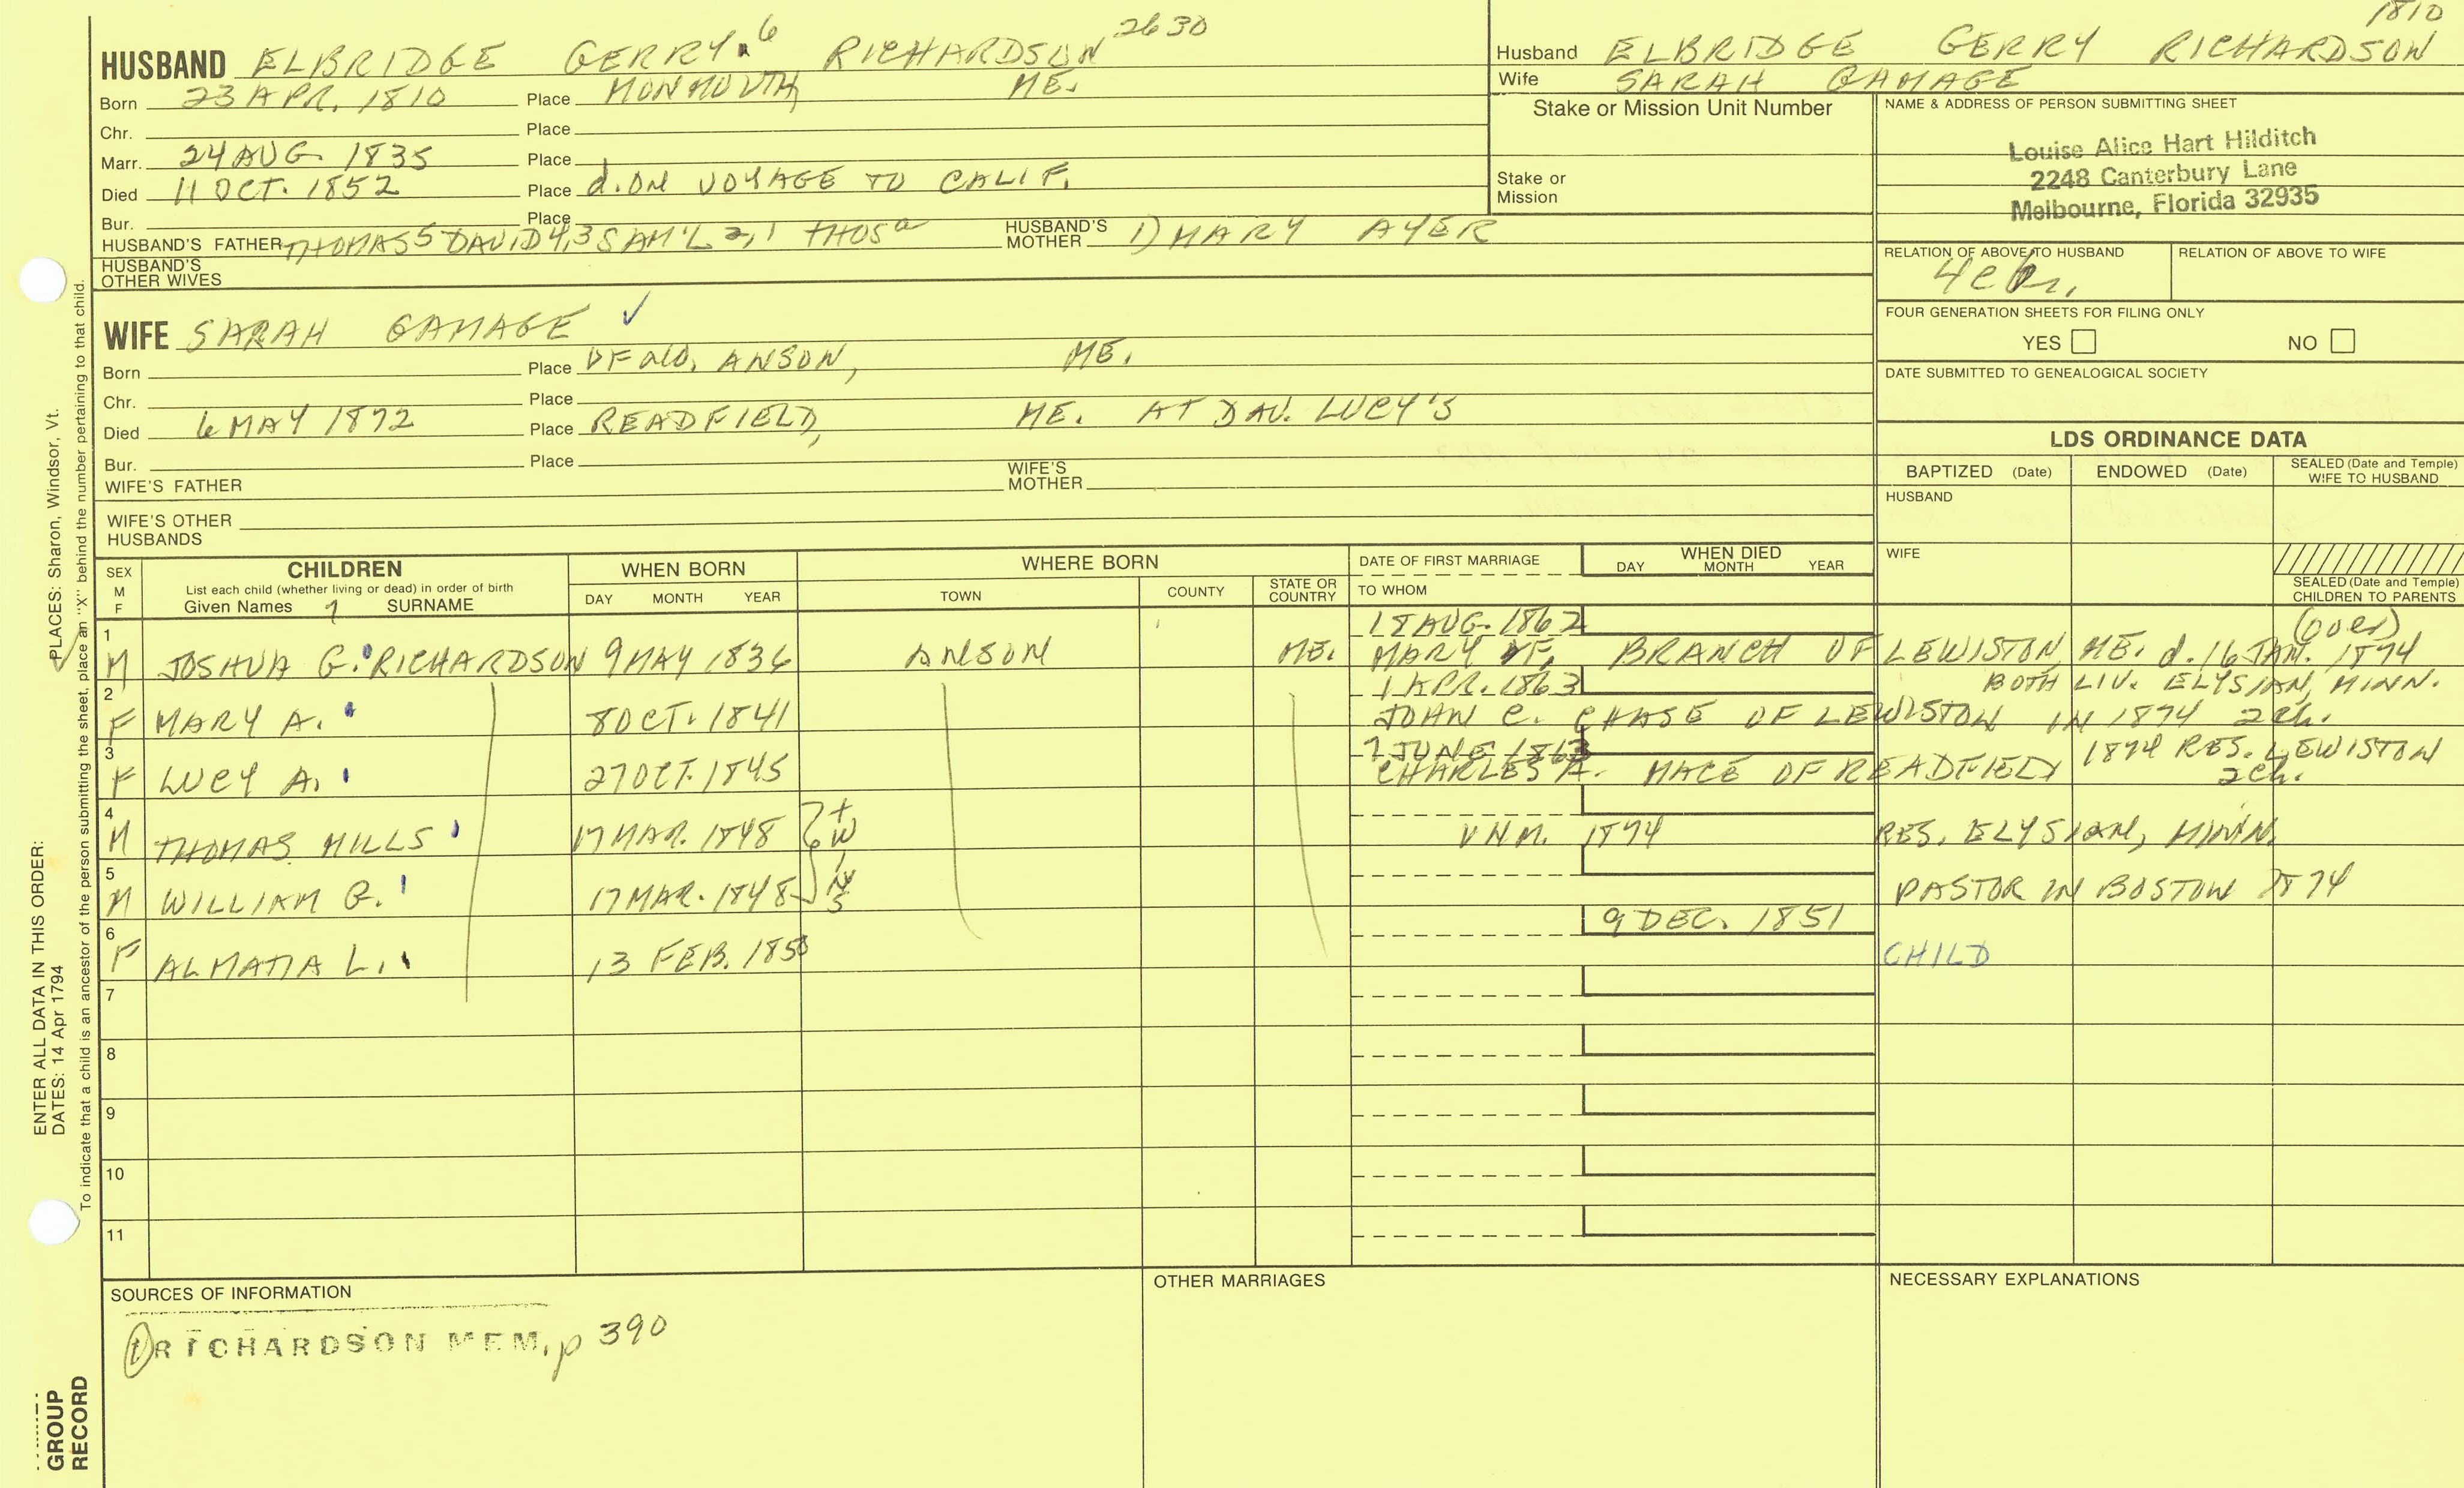 HUSBAND ELBRIDGE GERRY 6 RICHARDSON 2630
Born 23 APR. 1810 Place MONMOUTH, ME.
Chr. Place
Marr. 24 AUG. 1835 Place
Died 11 OCT. 1852 Place d. ON VOYAGE TO CALIF.
Bur. Place
HUSBAND'S FATHER THOMAS 5 DAVID 4,3 SAM'L 2,1 THOS a HUSBAND'S MOTHER 1) MARY AYER
HUSBAND'S OTHER WIVES
1810
Husband ELBRIDGE GERRY RICHARDSON
Wife SARAH GAMAGE
Stake or Mission Unit Number
Stake or Mission
NAME & ADDRESS OF PERSON SUBMITTING SHEET
Louise Alice Hart Hilditch
2248 Canterbury Lane
Melbourne, Florida 32935
RELATION OF ABOVE TO HUSBAND
RELATION OF ABOVE TO WIFE
FOUR GENERATION SHEETS FOR FILING ONLY
YES NO
DATE SUBMITTED TO GENEALOGICAL SOCIETY
WIFE SARAH GAMAGE ✓
Born Place OF ANSON, ME.
Chr. Place
Died 6 MAY 1872 Place READFIELD, ME. AT DAU. LUCY'S
Bur. Place
WIFE'S FATHER WIFE'S MOTHER
WIFE'S OTHER HUSBANDS
LDS ORDINANCE DATA
BAPTIZED (Date) ENDOWED (Date) SEALED (Date and Temple) WIFE TO HUSBAND
HUSBAND
WIFE
SEALED (Date and Temple) CHILDREN TO PARENTS
SEX M F
CHILDREN
List each child (whether living or dead) in order of birth
Given Names 7 SURNAME
WHEN BORN
DAY MONTH YEAR
WHERE BORN
TOWN COUNTY STATE OR COUNTRY
DATE OF FIRST MARRIAGE
TO WHOM
WHEN DIED
DAY MONTH YEAR
1 18 AUG. 1862 (over)
M JOSHUA G. RICHARDSON 9 MAY 1836 ANSON ME. MARY F. BRANCH OF LEWISTON, ME. d. 16 JAN. 1874
2 1 APR. 1863 BOTH LIV. ELYSIAN, MINN.
F MARY A. 8 OCT. 1841 JOHN C. CHASE OF LEWISTON IN 1874 2 ch.
3 7 JUNE 1863 1874 RES. LEWISTON
F LUCY A. 27 OCT. 1845 CHARLES A. MACE OF READFIELD 2 ch.
4
M THOMAS MILLS 17 MAR. 1848 UNM. 1874 RES. ELYSIAN, MINN.
TWINS
5
M WILLIAM G. 17 MAR. 1848 PASTOR IN BOSTON 1874
6 9 DEC. 1851
F ALMATIA L. 13 FEB. 1850 CHILD
7
8
9
10
11
SOURCES OF INFORMATION
1 RICHARDSON MEM, p 390
OTHER MARRIAGES
NECESSARY EXPLANATIONS
ENTER ALL DATA IN THIS ORDER:
DATES: 14 Apr 1794
PLACES: Sharon, Windsor, Vt.
To indicate that a child is an ancestor of the person submitting the sheet, place an "X" behind the number pertaining to that child.
GROUP
RECORD